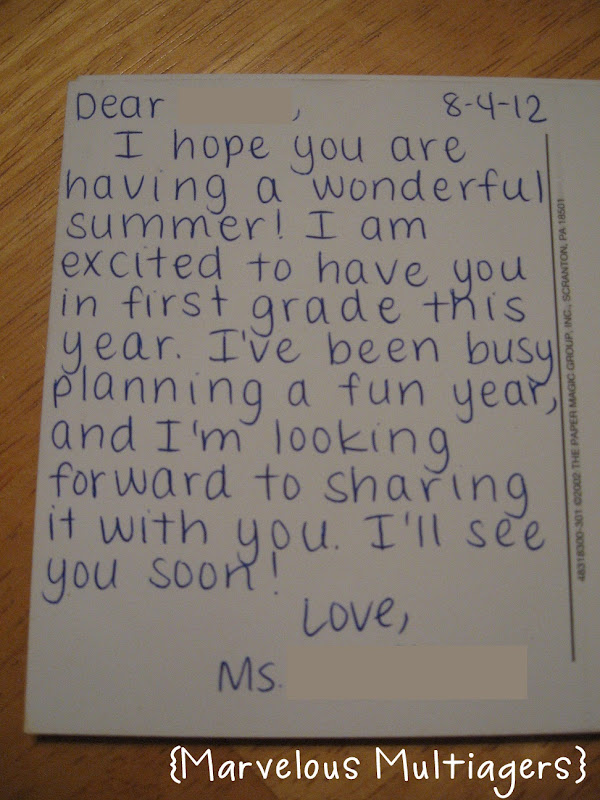 Dear , 8-4-12
I hope you are
having a wonderful
summer! I am
excited to have you
in first grade this
year. I've been busy
planning a fun year,
and I'm looking
forward to sharing
it with you. I'll see
you soon!
Love,
Ms.
48318300-301 ©2002 THE PAPER MAGIC GROUP, INC., SCRANTON, PA 18501
{Marvelous Multiagers}